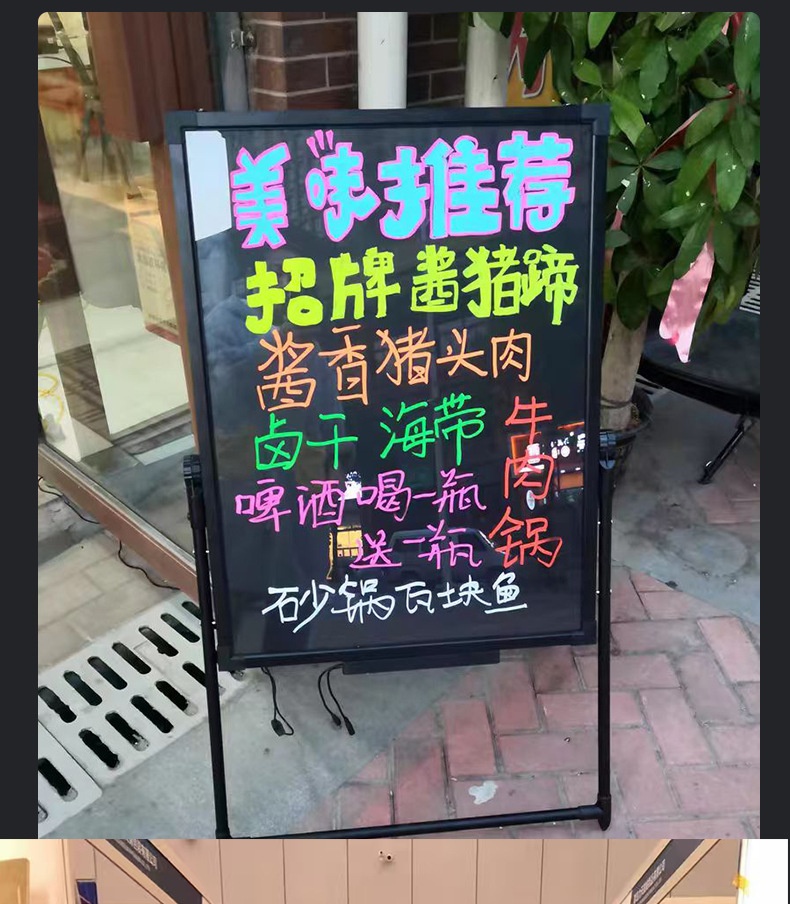 美味推荐
招牌酱猪蹄
酱香猪头肉
卤干 海带
牛肉锅
啤酒喝一瓶
送一瓶
砂锅瓦块鱼